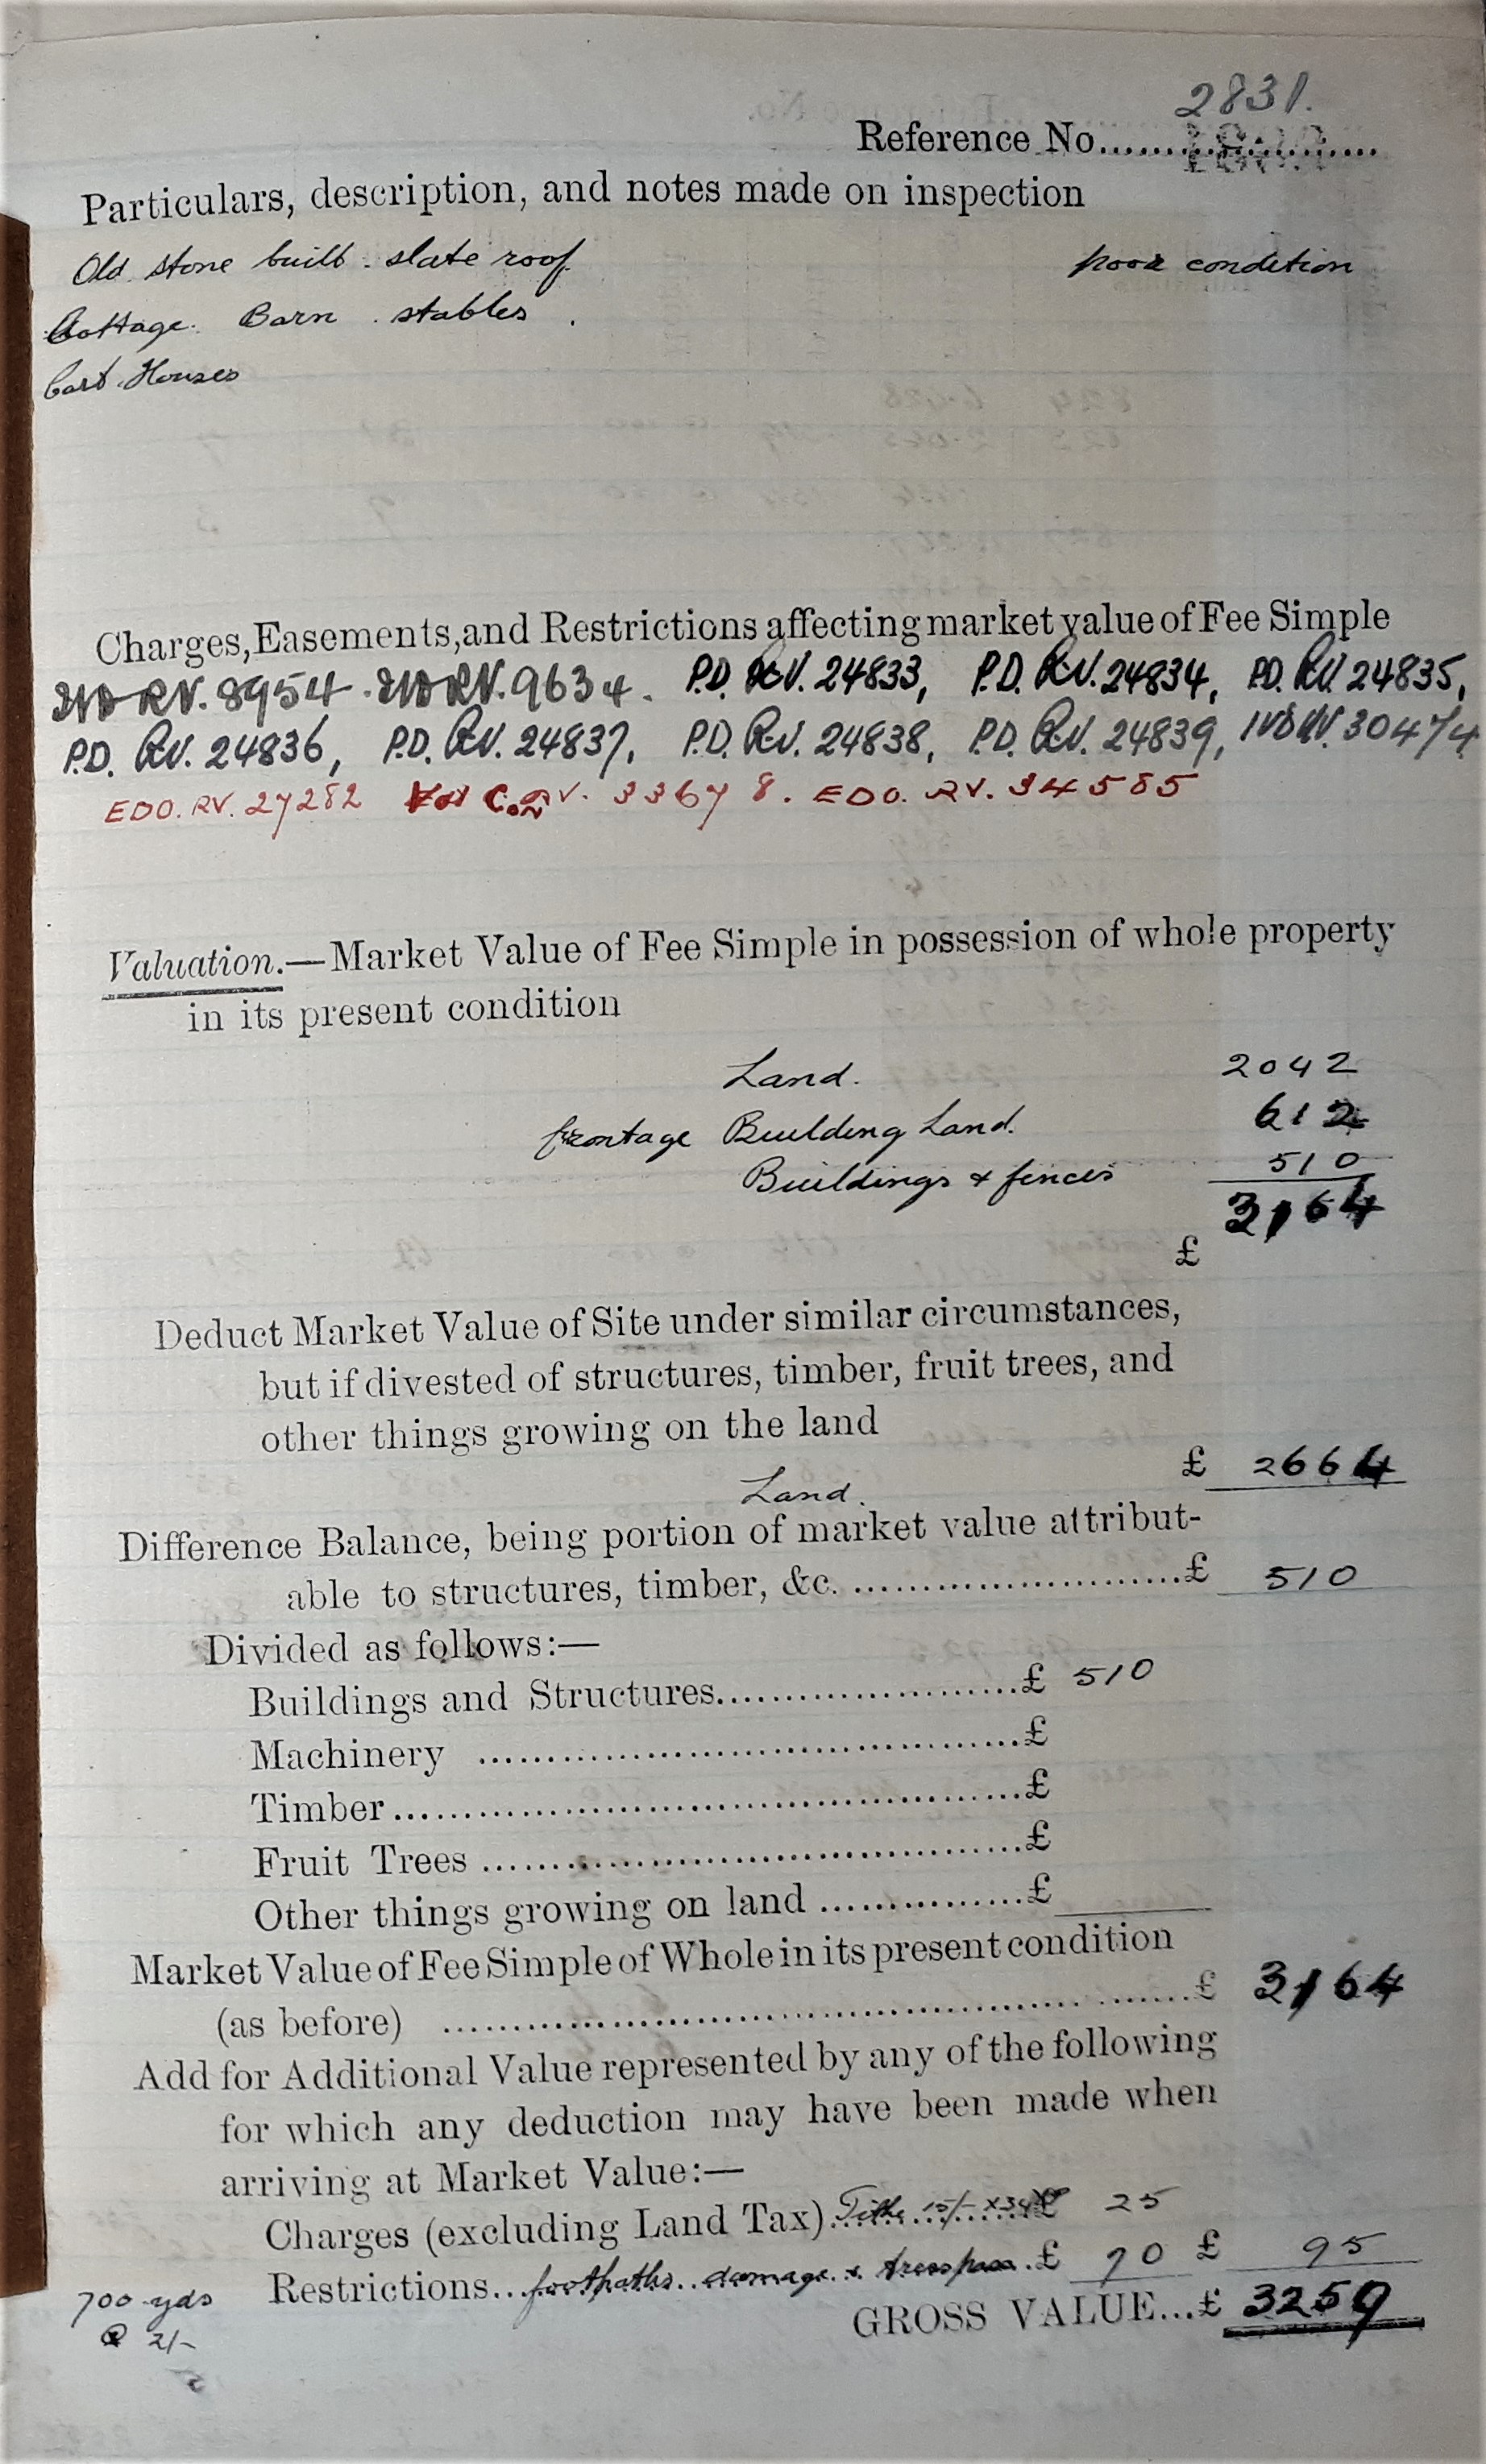 2831.
Reference No.
Particulars, description, and notes made on inspection
Old stone built. slate roof. poor condition
Cottage. Barn. stables.
Cart Houses
Charges, Easements, and Restrictions affecting market value of Fee Simple
RV. 8954. RV. 9634. P.D. RV. 24833, P.D. RV. 24834, P.D. RV. 24835,
P.D. RV. 24836, P.D. RV. 24837, P.D. RV. 24838, P.D. RV. 24839, 30474
EDO. RV. 27282 33678. EDO. RV. 34585
Valuation.—Market Value of Fee Simple in possession of whole property
in its present condition
Land. 2042
frontage Building Land. 612
Buildings & fences 510
3164
£
Deduct Market Value of Site under similar circumstances,
but if divested of structures, timber, fruit trees, and
other things growing on the land
Land. £ 2664
Difference Balance, being portion of market value attribut-
able to structures, timber, &c. ........................£ 510
Divided as follows:—
Buildings and Structures......................£ 510
Machinery ......................................£
Timber.............................................£
Fruit Trees ......................................£
Other things growing on land ...............£
Market Value of Fee Simple of Whole in its present condition
(as before) ......................................................£ 3164
Add for Additional Value represented by any of the following
for which any deduction may have been made when
arriving at Market Value:—
Charges (excluding Land Tax) Tithe 15/- £ 25
Restrictions...footpaths damage & tresspass.£ 70 £ 95
GROSS VALUE...£ 3259
700 yds
@ 2/-